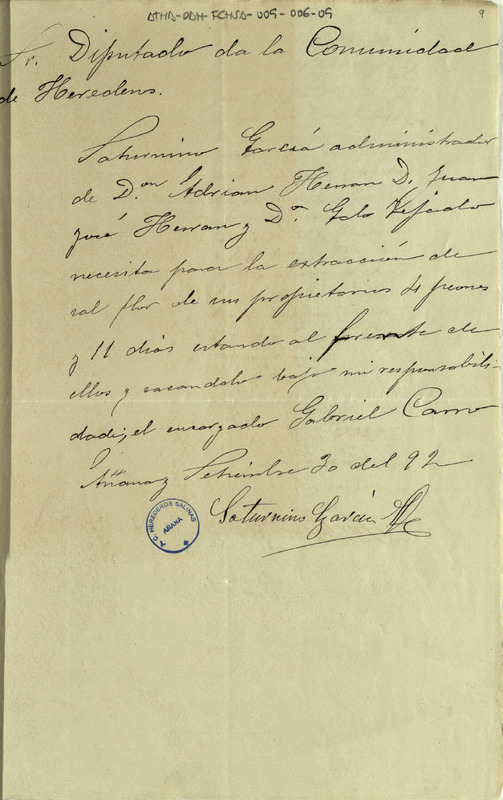 ATHA-DAH-FCHSA-009-006-09
9
Sr. Diputado da la Comunidad
de Herederos.
Saturnino García administrador
de Don Adrian Herran D. Juan
José Herran y Dn Galo Tejada
necesita para la extracción de
sal flor de sus propietarios 4 peones
y 11 dias estando al frente de
ellos y sacandolo bajo mi responsabili-
dad; el encargado Gabriel Carro
Añana y Setiembre 30 del 92
Saturnino García
A. C. HEREDEROS SALINAS
AÑANA